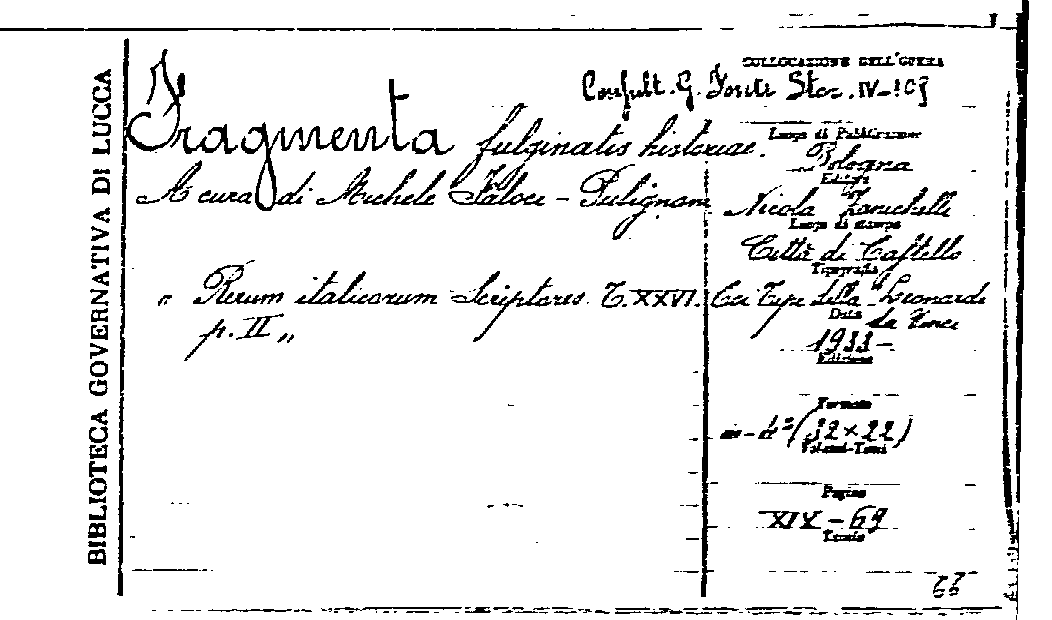 BIBLIOTECA GOVERNATIVA DI LUCCA
COLLOCAZIONE DELL'OPERA
Consult. G. Fonti Stor. IV-103
Fragmenta fulginatis historiae.
A cura di Michele Faloci-Pulignani
„ Rerum italicarum Scriptores. T. XXVI.
p. II „
Luogo di Pubblicazione
Bologna
Editore
Nicola Zanichelli
Luogo di stampa
Città di Castello
Tipografia
Coi Tipi della "Leonardo
da Vinci
Data
1933-
Edizione
Formato
(32×22)
Volumi-Tomi
Pagine
XIV-69
Tavole